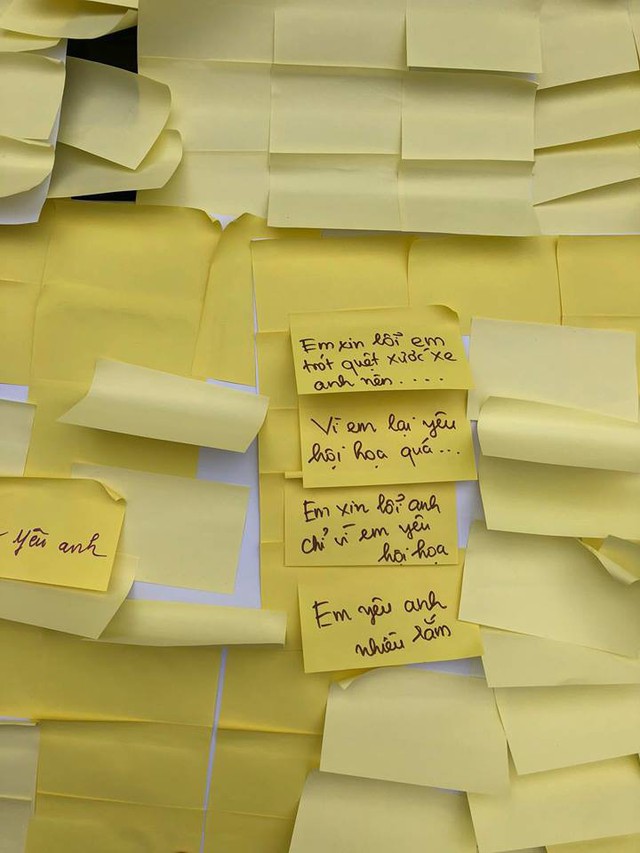 Em xin lỗi em
trót quệt xước xe
anh nên ....
Vì em lại yêu
hội họa quá ...
Em xin lỗi anh
chỉ vì em yêu
hội họa
Em yêu anh
nhiều lắm
yêu anh